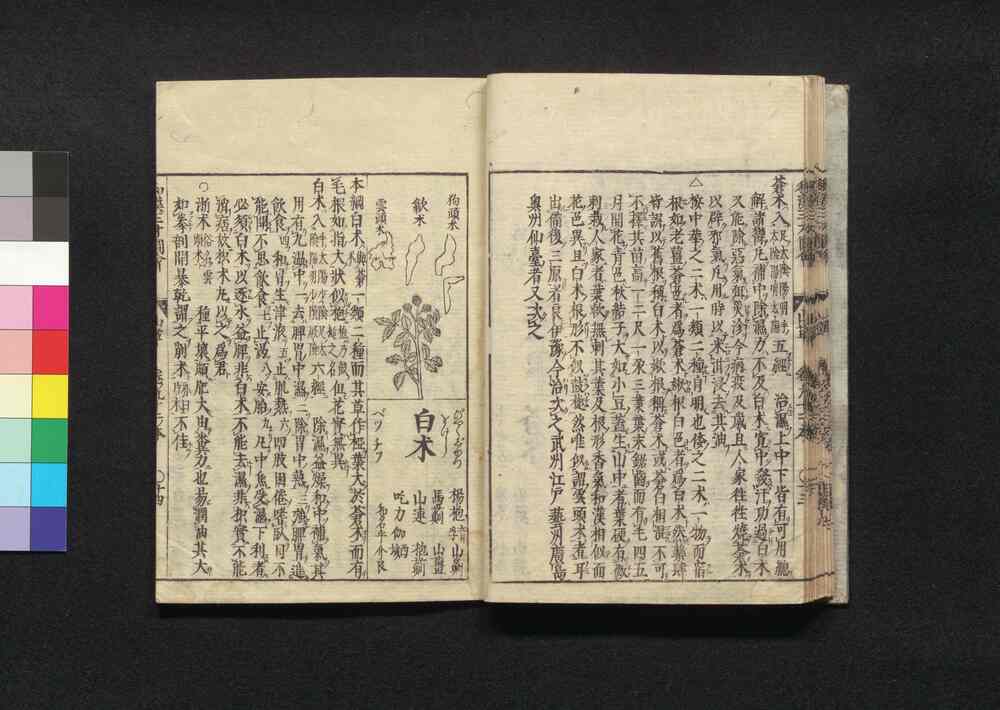 蒼朮入足太陰陽明 五經 治濕上中下皆有可用總
解諸鬱凡補中除濕力不及白朮寬中發汗功過白朮
又能除惡氣 今病疫及歲旦人家往往燒蒼朮
以辟邪氣凡用時以米泔浸去其油
△
按中華之二朮一類二種 明也倭之二朮一物而宿
根如老薑蒼色者爲蒼朮嫩根白色者爲白朮然藥肆
皆誤以舊根稱白朮以嫩根稱蒼朮或蒼白相混不可
不擇其苗高一二尺一朶三葉葉末鋸齒而有毛四五
月開花青色秋結子大如小豆蓋生山中者葉硬有微
刺栽人家者葉軟無刺其葉及根形香氣和漢相似而
花色異且白朮根形不似鼓槌然唯似謂雲頭朮者耳
出備後三原者良伊豫今治次之武州江戶藝州廣島
奧州仙臺者又次之
狗頭朮
歙朮
雲頭朮
白朮
楊枹 山薊
馬薊 山薑
山連 抱薊
吃力伽
本綱白朮與蒼一類二種而其草作椏葉大於蒼朮而有
毛根如指大狀如 但花實無異
白朮入 六經 除濕益燥和中補氣其
用有九溫中一去脾胃中濕二除胃中熱三強脾胃進
飲食四和胃生津液五止肌熱六四肢困倦嗜臥目不
能開不思飲食七止渴八安胎九凡中焦受濕下利者
必須白朮以逐水益脾非白朮不能去濕非枳實不能
消痞故枳朮丸以之爲君
○
浙朮 種平壤頗肥大由糞力也易潤油其大
如拳剖開暴乾謂之削朮 不佳